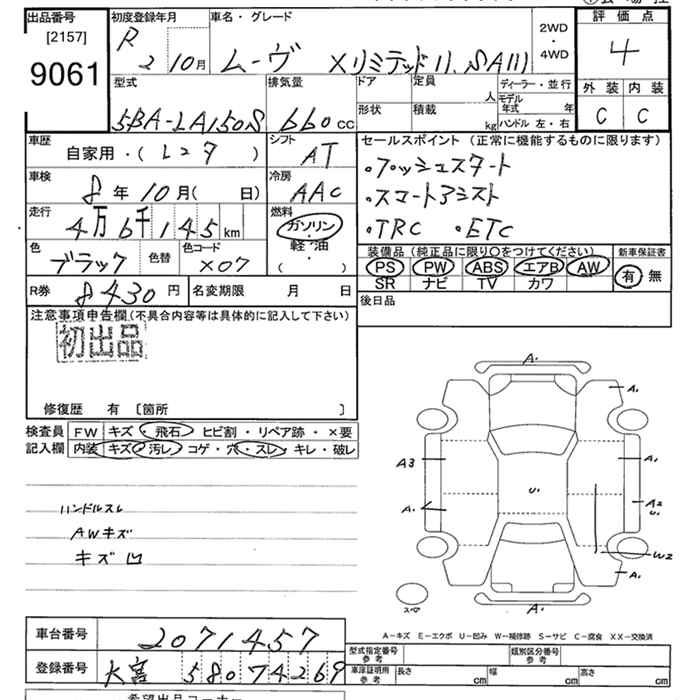 出品番号
[2157]
9061
初度登録年月
R
2 10月
車名・グレード
ムーヴ XリミテッドII、SAIII
2WD
・
4WD
評価点
4
外装 内装
C C
型式
5BA-LA150S
排気量
660 CC
ドア
形状
定員
人
積載
kg
ディーラー・並行
モデル
年式 年
ハンドル 左・右
車歴
自家用・( レンタ )
シフト
AT
車検
8年10月( 日)
冷房
AAC
走行
4万6千145km
燃料
ガソリン
・
軽油
( )
色
ブラック
色替
色コード
X07
R券
8430円
名変期限 月 日
セールスポイント(正常に機能するものに限ります)
・プッシュスタート
・スマートアシスト
・TRC ・ETC
装備品(純正品に限り〇をつけてください)
PS PW ABS エアB AW
SR ナビ TV カワ
新車保証書
有 無
後日品
注意事項申告欄(不具合内容等は具体的に記入して下さい)
初出品
修復歴 有 〔箇所 〕
検査員
記入欄
FW キズ・飛石・ヒビ割・リペア跡・×要
内装 キズ・汚レ・コゲ・穴・スレ・キレ・破レ
ハンドルスレ
AWキズ
キズ凹
A.
A.
A3
A.
A.
U.
A2
U.
W2
A.
A.
スペア
A-キズ E-エクボ U-凹み W-補修跡 S-サビ C-腐食 XX-交換済
車台番号
2071457
登録番号
大宮 580 74269
型式指定番号
参考
類別区分番号
参考
車庫証明用
参考
長さ cm 幅 cm 高さ cm
希望出品コーナー